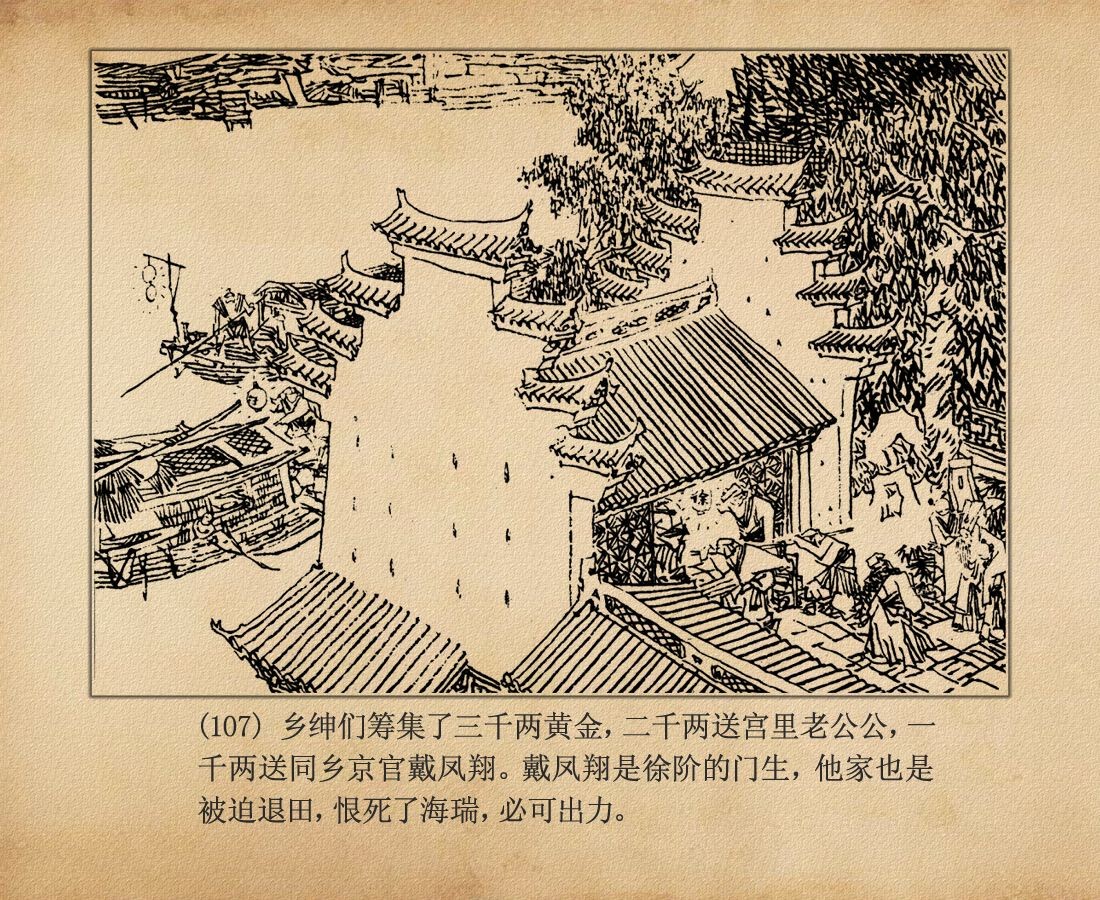 徐
(107) 乡绅们筹集了三千两黄金，二千两送宫里老公公，一
千两送同乡京官戴凤翔。戴凤翔是徐阶的门生，他家也是
被迫退田，恨死了海瑞，必可出力。